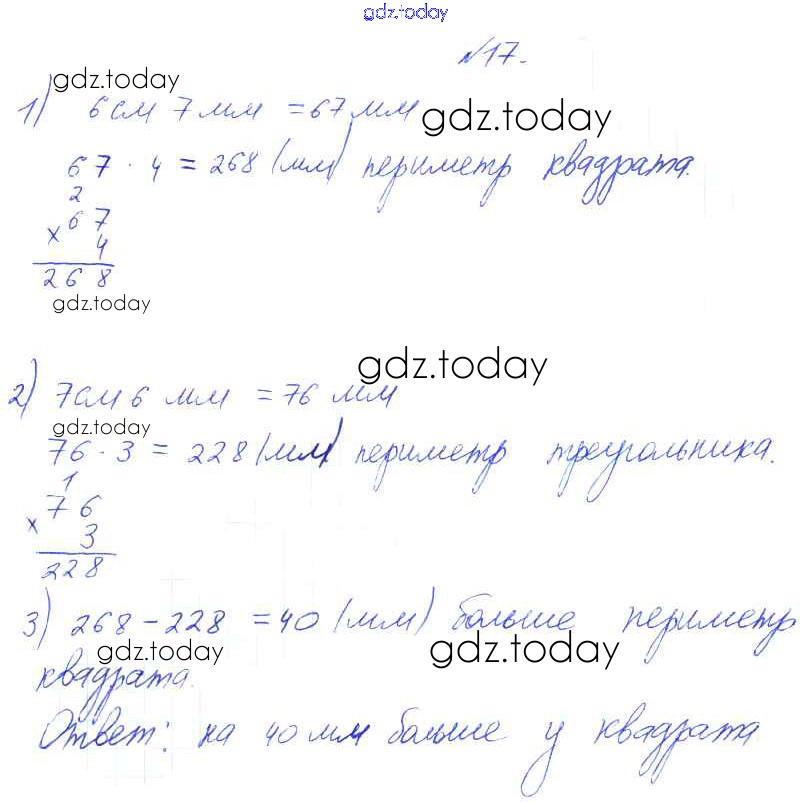 gdz.today
№17.
gdz.today
1) 6см 7мм = 67мм
gdz.today
67 · 4 = 268 (мм) периметр квадрата.
2
× 67
4
268
gdz.today
gdz.today
2) 7см 6 мм = 76 мм
gdz.today
76 · 3 = 228 (мм) периметр треугольника.
1
× 76
3
228
3) 268 - 228 = 40 (мм) больше периметр
gdz.today gdz.today
квадрата.
Ответ: на 40 мм больше у квадрата